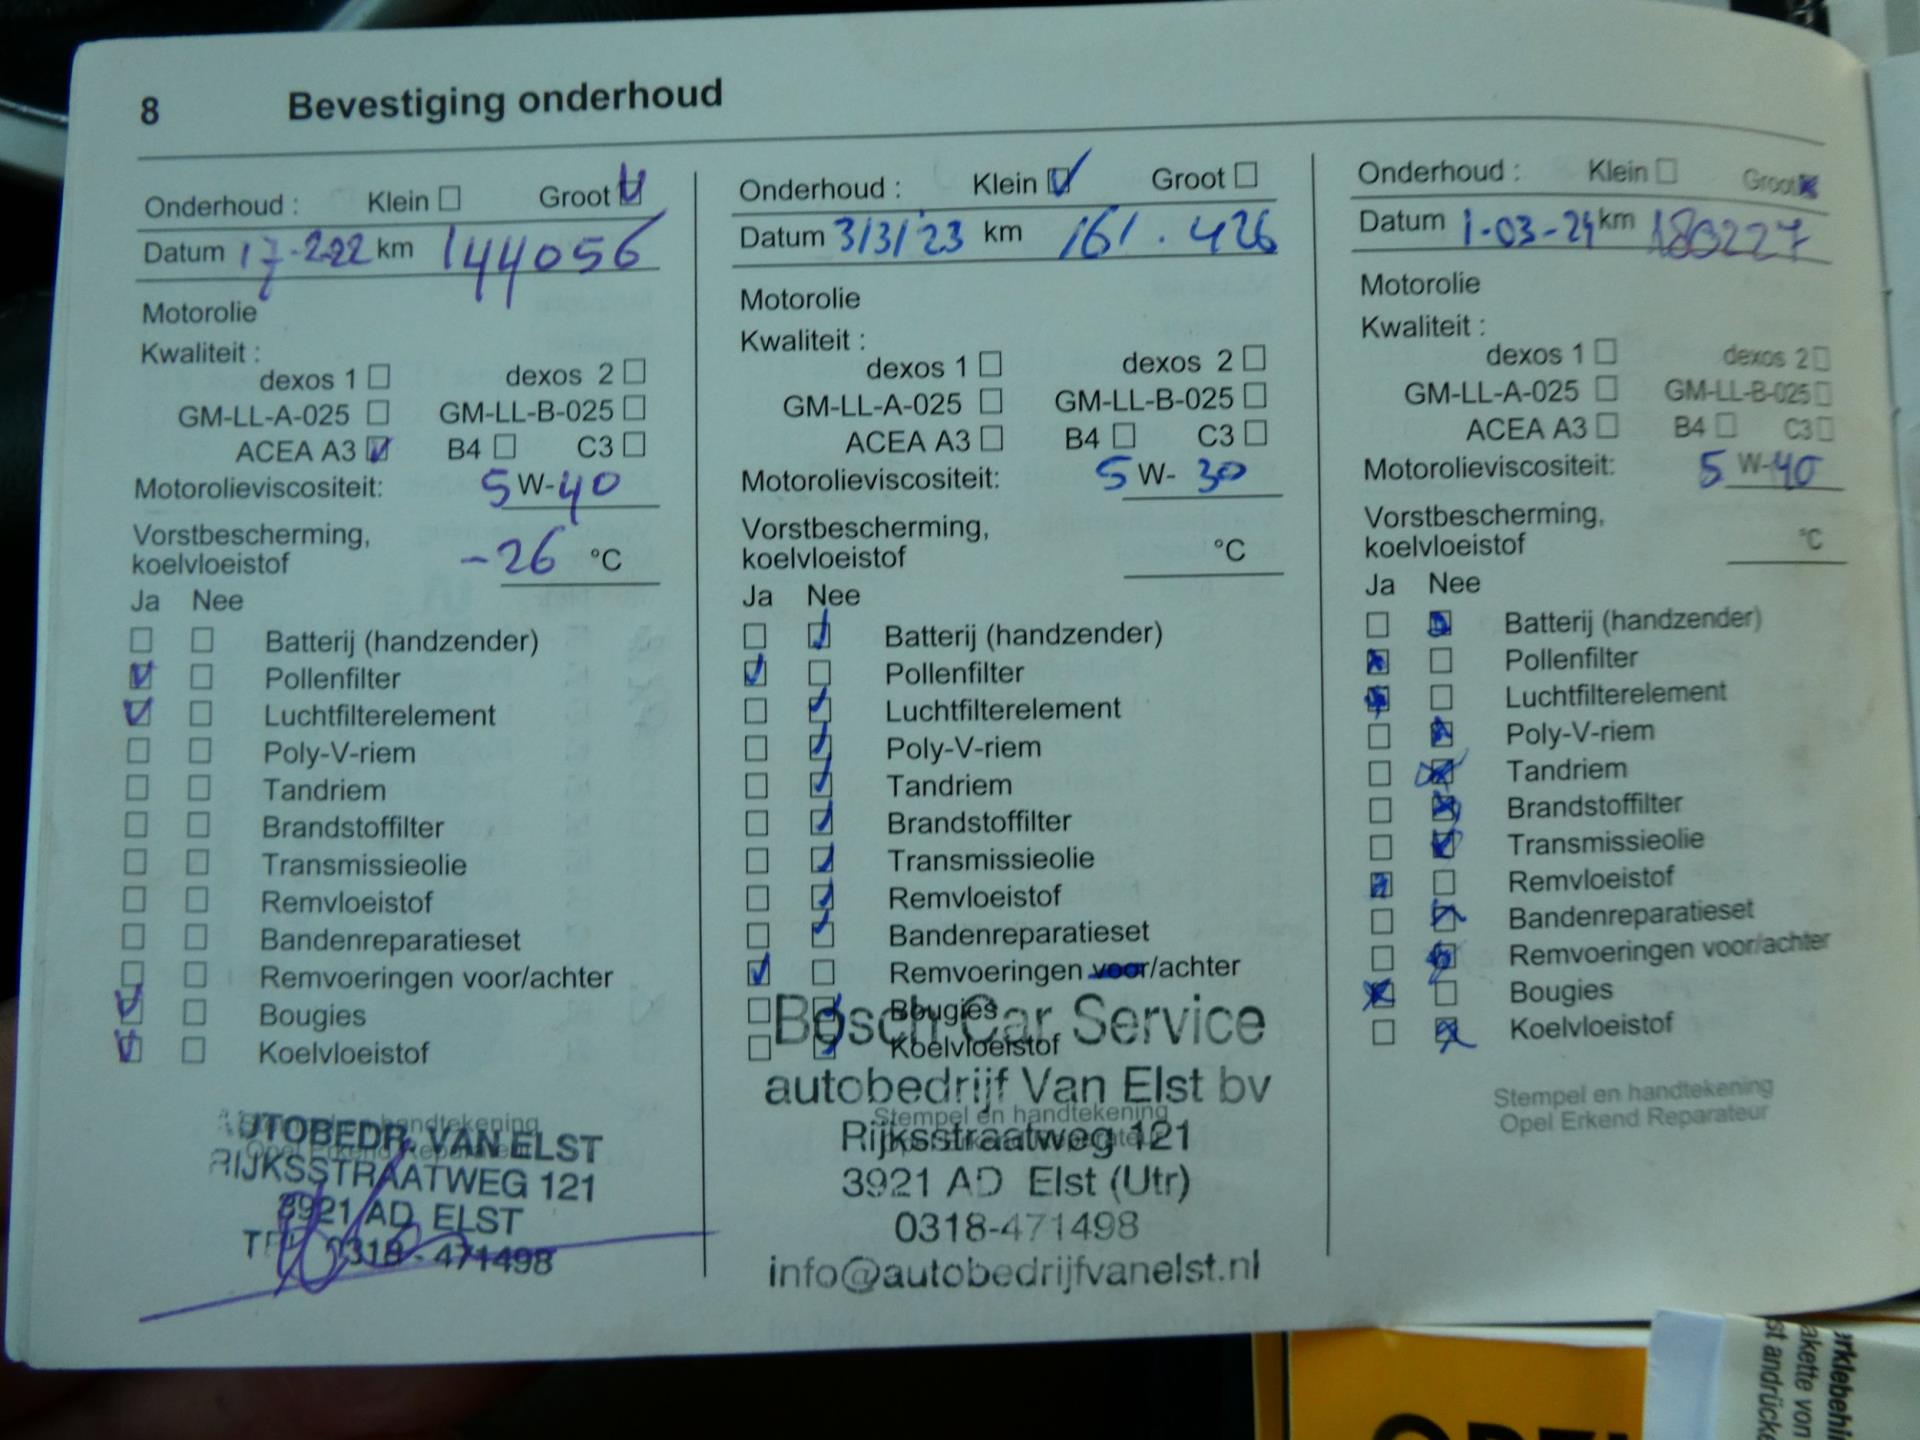 8 Bevestiging onderhoud
Onderhoud : Klein Groot
Datum 17-2-22 km 144056
Motorolie
Kwaliteit :
dexos 1 dexos 2
GM-LL-A-025 GM-LL-B-025
ACEA A3 B4 C3
Motorolieviscositeit: 5 W-40
Vorstbescherming,
koelvloeistof -26 °C
Ja Nee
Batterij (handzender)
Pollenfilter
Luchtfilterelement
Poly-V-riem
Tandriem
Brandstoffilter
Transmissieolie
Remvloeistof
Bandenreparatieset
Remvoeringen voor/achter
Bougies
Koelvloeistof
Stempel en handtekening
Opel Erkend Reparateur
AUTOBEDR. VAN ELST
RIJKSSTRAATWEG 121
3921 AD ELST
TEL. 0318-471498
Onderhoud : Klein Groot
Datum 3/3/'23 km 161.426
Motorolie
Kwaliteit :
dexos 1 dexos 2
GM-LL-A-025 GM-LL-B-025
ACEA A3 B4 C3
Motorolieviscositeit: 5 W- 30
Vorstbescherming,
koelvloeistof °C
Ja Nee
Batterij (handzender)
Pollenfilter
Luchtfilterelement
Poly-V-riem
Tandriem
Brandstoffilter
Transmissieolie
Remvloeistof
Bandenreparatieset
Remvoeringen voor/achter
Bougies
Koelvloeistof
Bosch Car Service
autobedrijf Van Elst bv
Stempel en handtekening
Rijksstraatweg 121
3921 AD Elst (Utr)
0318-471498
info@autobedrijfvanelst.nl
Onderhoud : Klein Groot
Datum 1-03-24 km 180227
Motorolie
Kwaliteit :
dexos 1 dexos 2
GM-LL-A-025 GM-LL-B-025
ACEA A3 B4 C3
Motorolieviscositeit: 5 W-40
Vorstbescherming,
koelvloeistof °C
Ja Nee
Batterij (handzender)
Pollenfilter
Luchtfilterelement
Poly-V-riem
Tandriem
Brandstoffilter
Transmissieolie
Remvloeistof
Bandenreparatieset
Remvoeringen voor/achter
Bougies
Koelvloeistof
Stempel en handtekening
Opel Erkend Reparateur
akette von
st andrücke